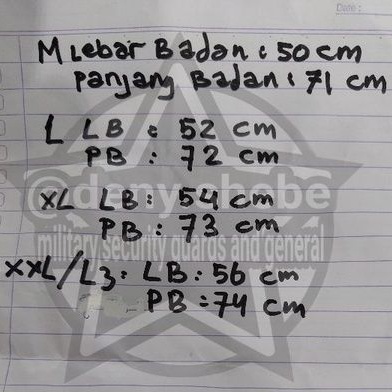 Date :
M Lebar Badan : 50 cm
Panjang Badan : 71 cm
L LB : 52 cm
PB : 72 cm
XL LB : 54 cm
PB : 73 cm
XXL/L3 : LB : 56 cm
PB : 74 cm
military security guards and general